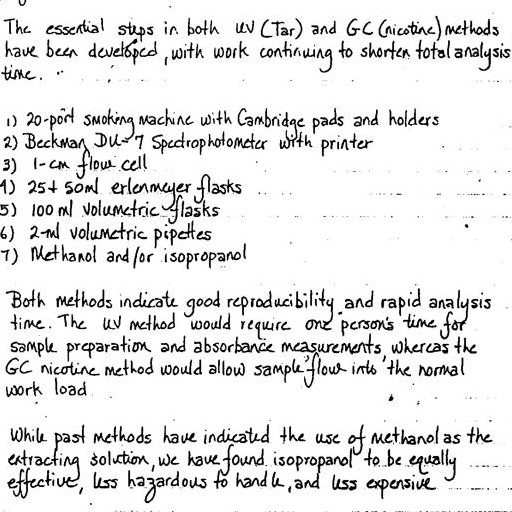 The essential steps in both UV (Tar) and GC (nicotine) methods
have been developed, with work continuing to shorten total analysis
time.
1) 20-port smoking machine with Cambridge pads and holders
2) Beckman DU-7 Spectrophotometer with printer
3) 1-cm flow cell
4) 25 + 50 ml erlenmeyer flasks
5) 100 ml volumetric flasks
6) 2-ml volumetric pipettes
7) Methanol and/or isopropanol
Both methods indicate good reproducibility and rapid analysis
time. The UV method would require one person's time for
sample preparation and absorbance measurements, whereas the
GC nicotine method would allow sample flow into the normal
work load
While past methods have indicated the use of methanol as the
extracting solution, we have found isopropanol to be equally
effective, less hazardous to handle, and less expensive